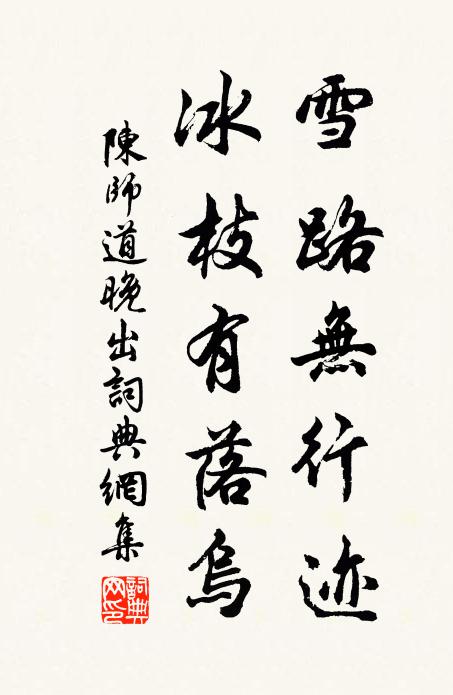 雪路無行迹
冰枝有落烏
陳師道晚出詞典網集
詞典网印